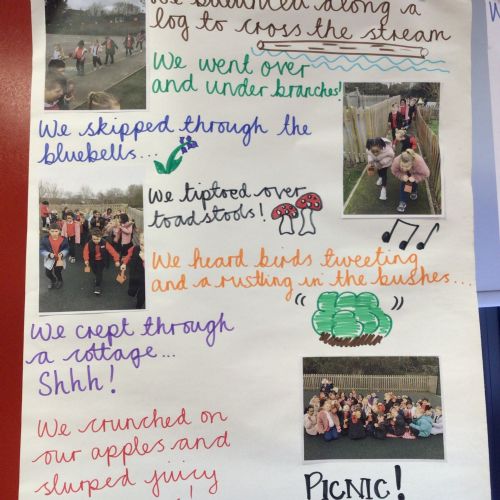 We balanced along a
log to cross the stream
We went over
and under branches!
We skipped through the
bluebells...
We tiptoed over
toadstools!
We heard birds tweeting
and a rustling in the bushes...
We crept through
a cottage...
Shhh!
We crunched on
our apples and
slurped juicy
PICNIC!